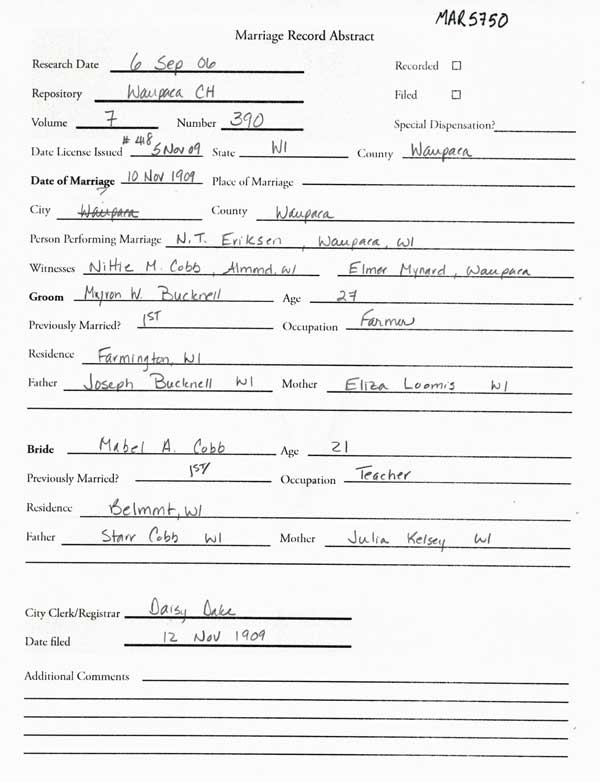 MAR5750
Marriage Record Abstract
Research Date 6 Sep 06 Recorded
Repository Waupaca CH Filed
Volume 7 Number 390 Special Dispensation?
# 418
Date License Issued 5 Nov 09 State WI County Waupaca
Date of Marriage 10 Nov 1909 Place of Marriage
City Waupaca County Waupaca
Person Performing Marriage N.T. Eriksen, Waupaca, WI
Witnesses Nittie M. Cobb, Almmd, WI Elmer Mynard, Waupaca
Groom Myron W. Bucknell Age 27
Previously Married? 1ST Occupation Farmer
Residence Farmington, WI
Father Joseph Bucknell WI Mother Eliza Loomis WI
Bride Mabel A. Cobb Age 21
Previously Married? 1ST Occupation Teacher
Residence Belmmt, WI
Father Starr Cobb WI Mother Julia Kelsey WI
City Clerk/Registrar Daisy Dake
Date filed 12 Nov 1909
Additional Comments